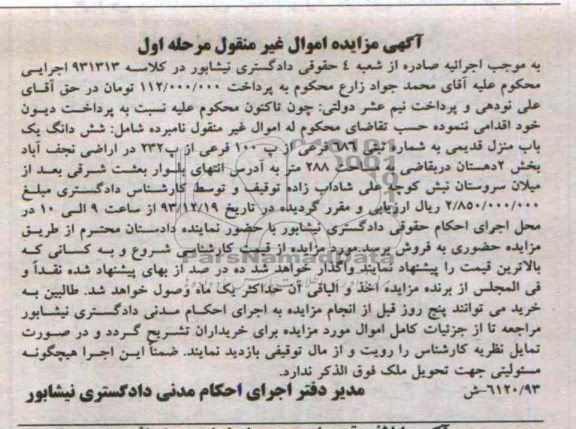 آگهی مزایده اموال غیر منقول مرحله اول
به موجب اجرائیه صادره از شعبه ٤ حقوقی دادگستری نیشابور در کلاسه ۹۳۱۳۱۳ اجرایی
محکوم علیه آقای محمد جواد زارع محکوم به پرداخت ۱۱۲/۰۰۰/۰۰۰ تومان در حق آقای
علی نودهی و پرداخت نیم عشر دولتی: چون تاکنون محکوم علیه نسبت به پرداخت دیون
خود اقدامی ننموده حسب تقاضای محکوم له اموال غیر منقول نامبرده شامل: شش دانگ یک
باب منزل قدیمی به شماره ثبتی ٦٨٦ فرعی از پ ۱۰۰ فرعی از پ۲۳۲ در اراضی نجف آباد
بخش ۲دهستان دربقاضی به مساحت ۲۸۸ متر به آدرس انتهای بلوار بعثت شرقی بعد از
میلان سروستان نبش کوچه علی شاداب زاده توقیف و توسط کارشناس دادگستری مبلغ
۲/۸۵۰/۰۰۰/۰۰۰ ریال ارزیابی و مقرر گردیده در تاریخ ۹۳/۱۲/۱۹ از ساعت ۹ الی ۱۰ در
محل اجرای احکام حقوقی دادگستری نیشابور با حضور نماینده دادستان محترم از طریق
مزایده حضوری به فروش برسد.مورد مزایده از قیمت کارشناسی شروع و به کسانی که
ParsNamadData
بالاترین قیمت را پیشنهاد نمایند واگذار خواهد شد ده در صد از بهای پیشنهاد شده نقداً و
فی المجلس از برنده مزایده اخذ و الباقی آن حداکثر یک ماه وصول خواهد شد. طالبین به
خرید می توانند پنج روز قبل از انجام مزایده به اجرای احکام مدنی دادگستری نیشابور
مراجعه تا از جزئیات کامل اموال مورد مزایده برای خریداران تشریح گردد و در صورت
تمایل نظریه کارشناس را رویت و از مال توقیفی بازدید نمایند. ضمناً این اجرا هیچگونه
مسئولیتی جهت تحویل ملک فوق الذکر ندارد.
٦۱۲۰/۹۳-ش مدیر دفتر اجرای احکام مدنی دادگستری نیشابور